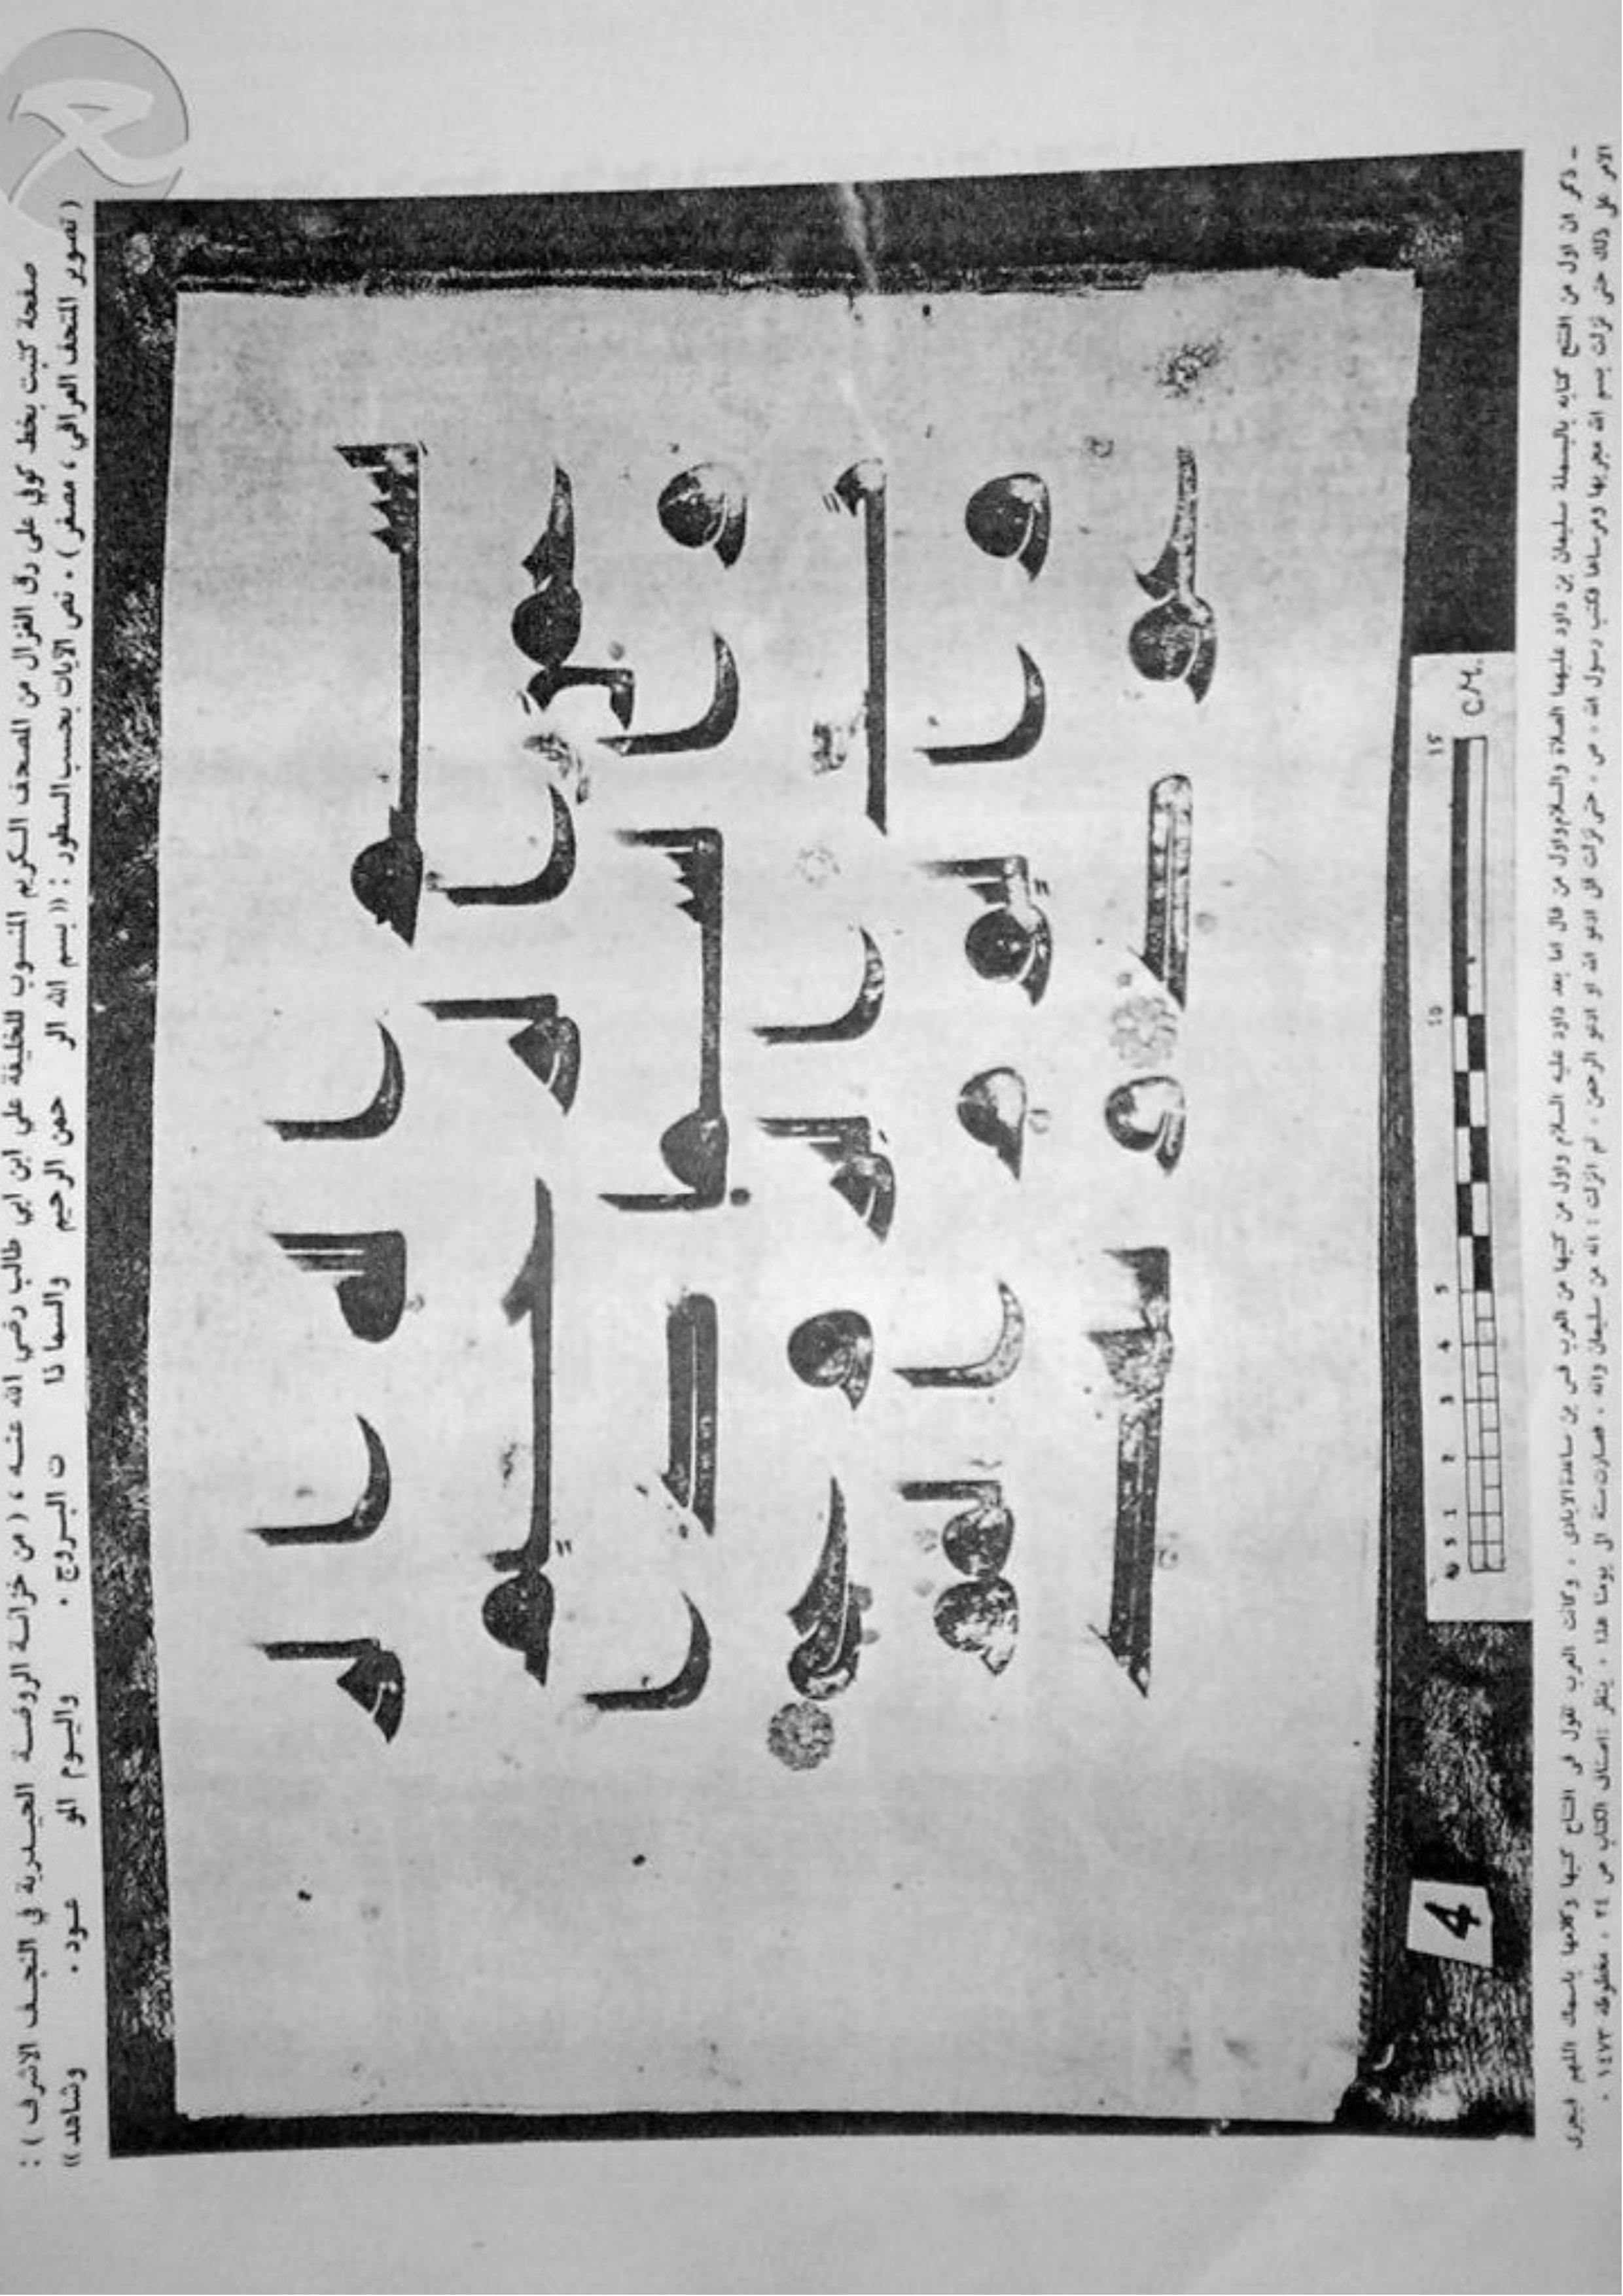 صفحة كتبت بخط كوفي على رق الغزال من المصحف الكريم المنسوب للخليفة علي ابن ابي طالب رضي الله عنه ، ( من خزانة الروضة الحيدرية في النجف الاشرف ) :
( تصوير المتحف العراقي ، مصغر ) ٠ نص الآيات بحسب السطور : (( بسم الله الر حمن الرحيم والسما ذا ت البروج ٠ واليوم المو عود ٠ وشاهد ))
بسم الله الر
حمن الرحيم
والسما ذا
ت البروج
واليوم المو
عود وشهد
0 5 1 2 3 4 5 10 15 C.M.
4
ـ ذكر ان اول من افتتح كتابه بالبسملة سليمان بن داود عليهما الصلاة والسلام واول من قال اما بعد داود عليه السلام واول من كتبها من العرب قس بن ساعدة الايادي ، وكانت العرب تقول في افتتاح كتبها وكلامها باسمك اللهم فجرى
الامر على ذلك حتى نزلت بسم الله مجريها ومرساها فكتب رسول الله ، ص ، حتى نزلت قل ادعو الله او ادعو الرحمن ، ثم انزلت : انه من سليمان وانه ، فصارت سنة الى يومنا هذا ، ينظر : اصناف الكتاب ص ٢٤ ، مخطوطة ١٤٧٣ ٠